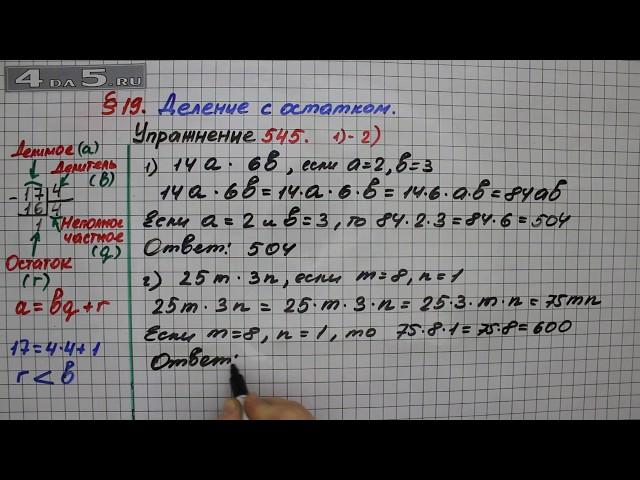 4DA5.RU
§19. Деление с остатком.
Упражнение 545. 1)-2)
Делимое (a)
Делитель (b)
- 17 | 4
16 | 4
1
Неполное
частное
(q)
Остаток
(r)
a = bq + r
17 = 4·4+1
r < b
1) 14a · 6b, если a=2, b=3
14a · 6b = 14·a·6·b = 14·6·a·b = 84ab
Если a = 2 и b = 3, то 84·2·3 = 84·6 = 504
Ответ: 504
2) 25m · 3n, если m=8, n=1
25m · 3n = 25·m·3·n = 25·3·m·n = 75mn
Если m=8, n=1, то 75·8·1 = 75·8 = 600
Ответ: